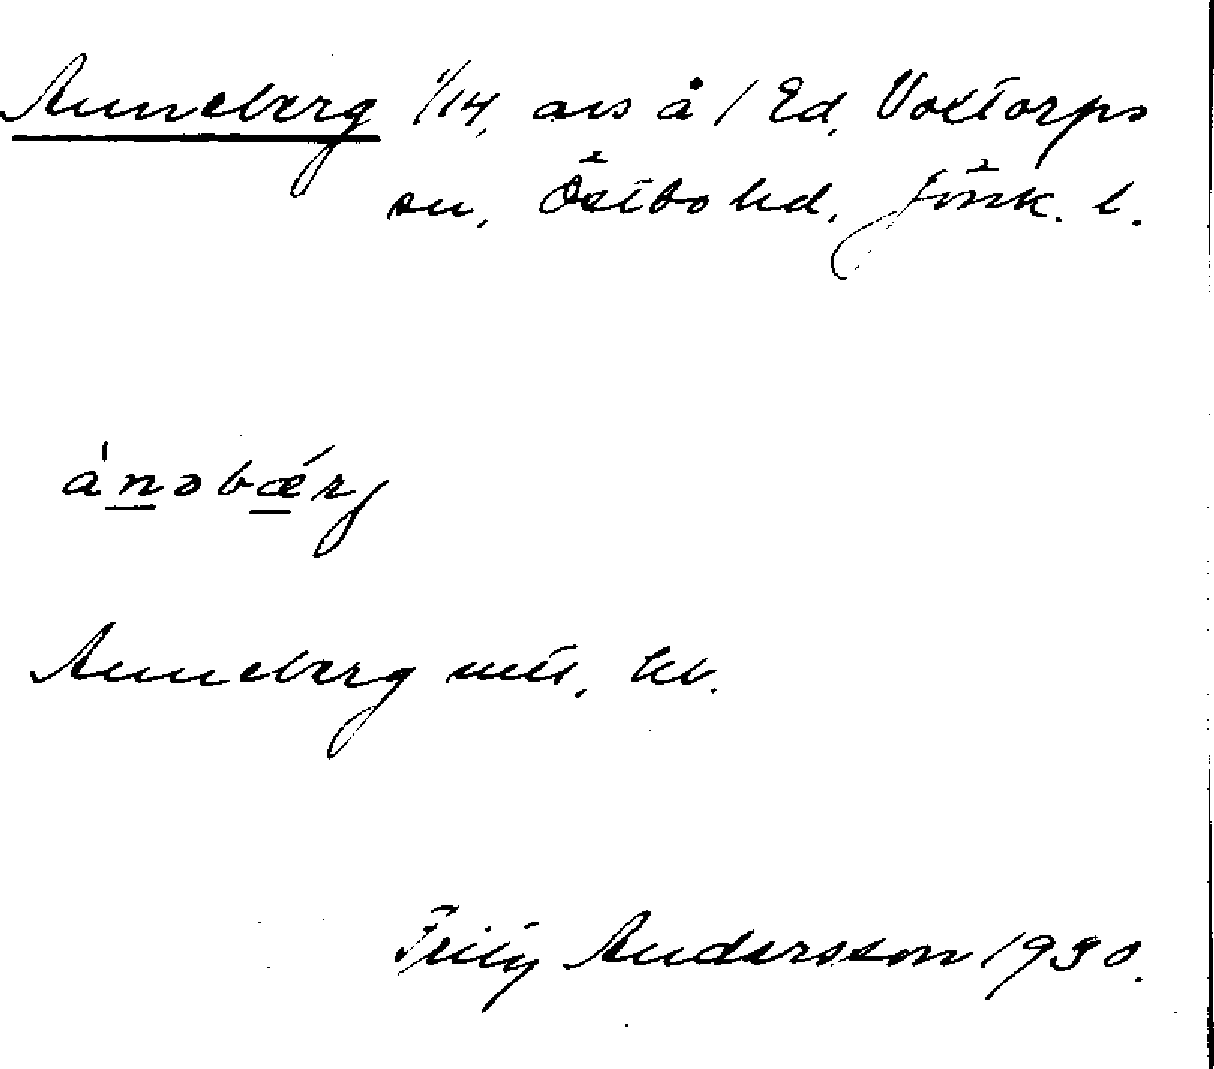 Anneberg 1/14, avs å 1 Ed, Voxtorps
sn, Östbo hd, Jönk. l.
ánəbǽrj
Anneberg mtl. hv.
Frity Andersson 1930.